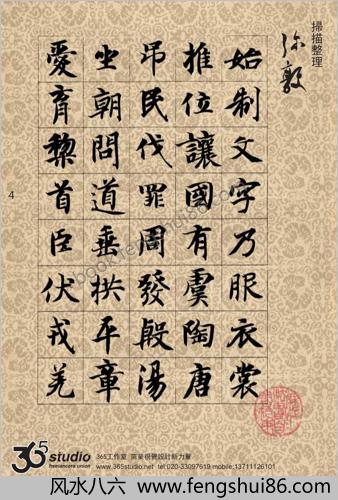 掃描整理
始制文字乃服衣裳
推位讓國有虞陶唐
吊民伐罪周發殷湯
坐朝問道垂拱平章
愛育黎首臣伏戎羌
4
365 studio
freelancers union
365工作室 商業視覺設計新力量
www.365studio.net tel:020-33097619 mobil:13711126101
风水八六 www.fengshui86.com